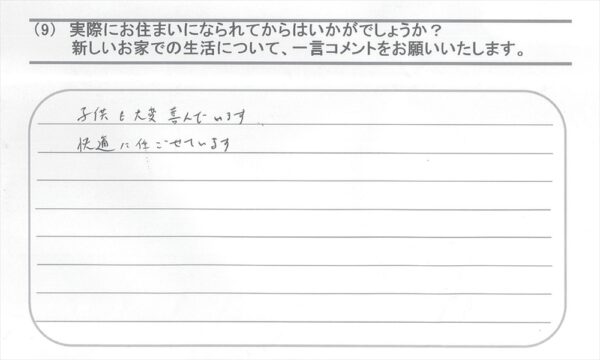 (9) 実際にお住まいになられてからはいかがでしょうか？
新しいお家での生活について、一言コメントをお願いいたします。
子供も大変喜んでいます
快適に住ごせています